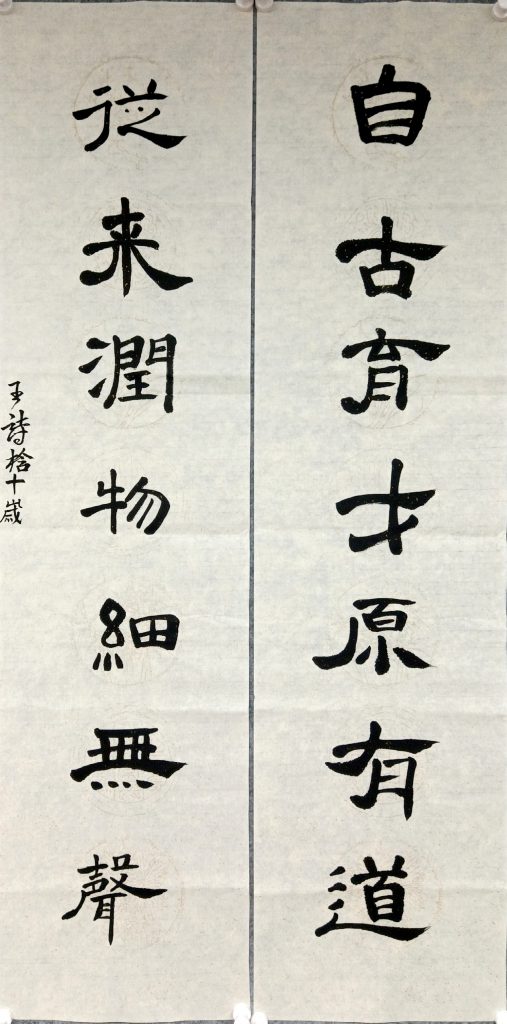 自古育才原有道
從来潤物細無聲
王詩捨十歲